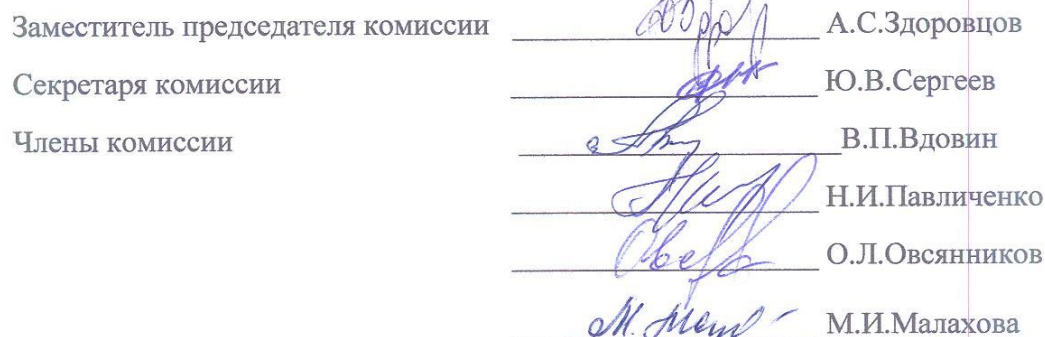 Заместитель председателя комиссии А.С.Здоровцов
Секретаря комиссии Ю.В.Сергеев
Члены комиссии В.П.Вдовин
Н.И.Павличенко
О.Л.Овсянников
М.И.Малахова